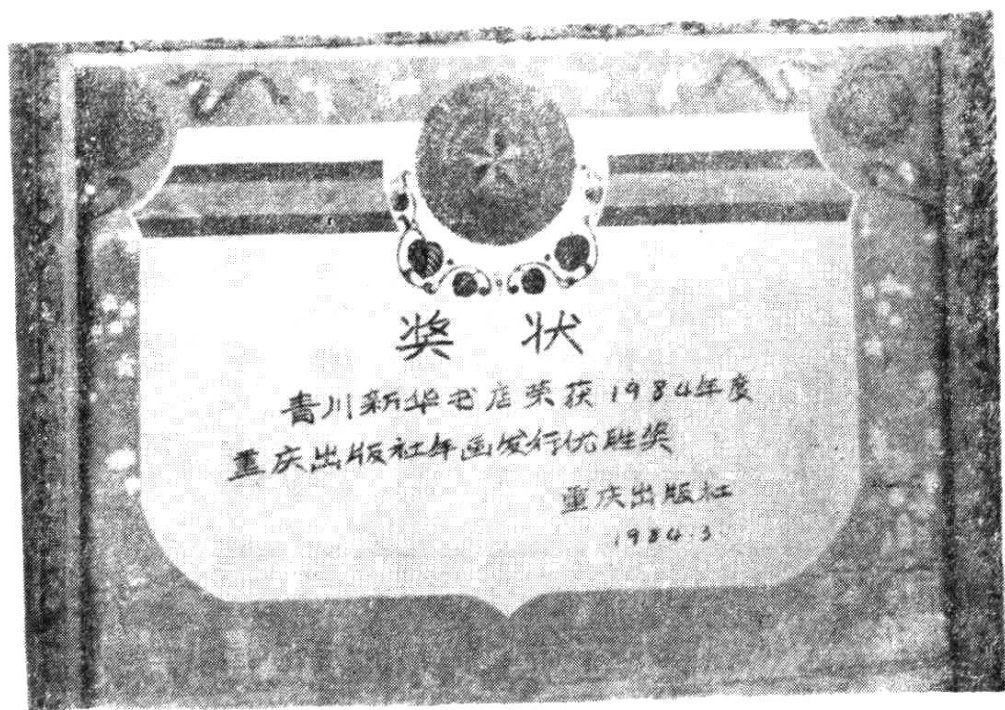 奖状
青川新华书店荣获1984年度
重庆出版社年画发行优胜奖
重庆出版社
1984.3